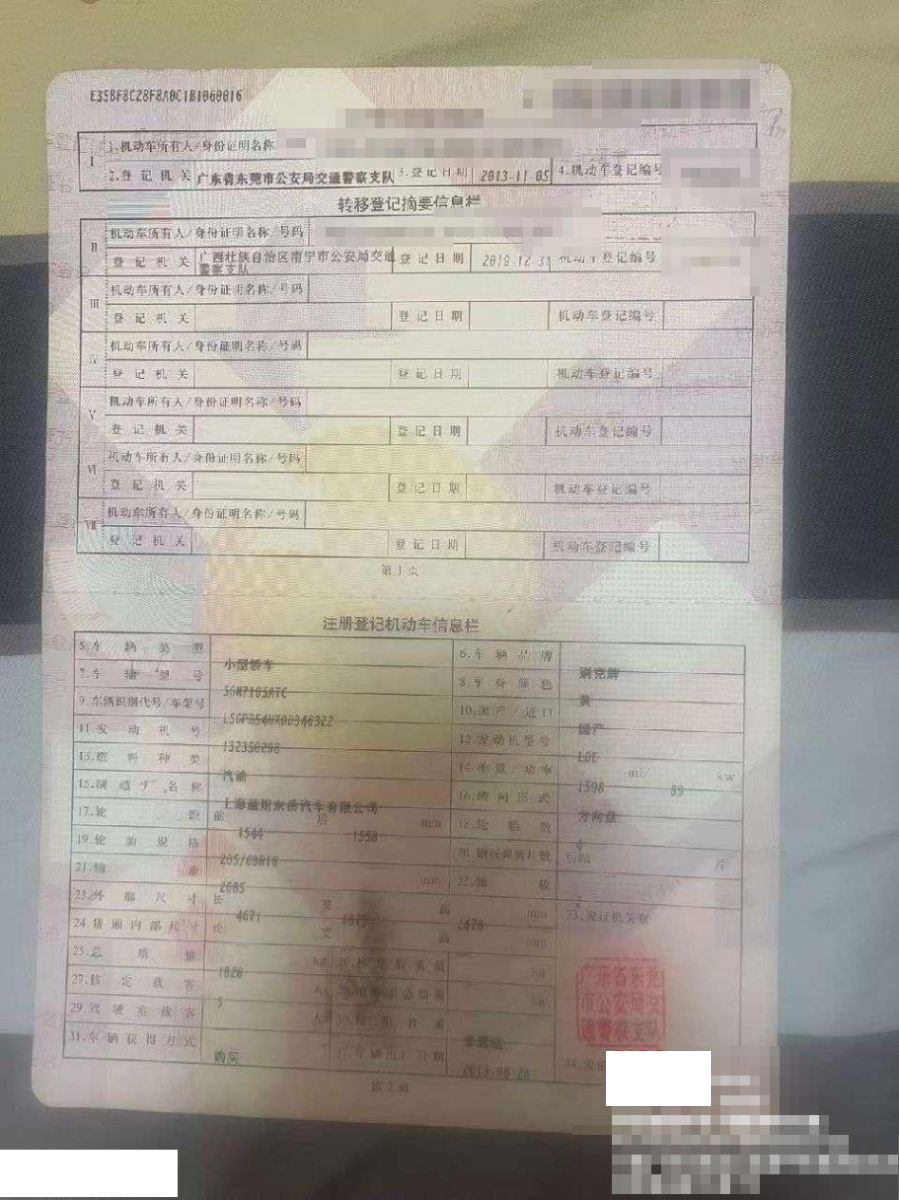 E35BF8C28F8A0C1B1060016
I 1.机动车所有人/身份证明名称
2.登记机关 广东省东莞市公安局交通警察支队 3.登记日期 2013-11-05 4.机动车登记编号
转移登记摘要信息栏
II 机动车所有人/身份证明名称/号码
登记机关 广西壮族自治区南宁市公安局交通警察支队 登记日期 2019-12-31 机动车登记编号
III 机动车所有人/身份证明名称/号码
登记机关 登记日期 机动车登记编号
IV 机动车所有人/身份证明名称/号码
登记机关 登记日期 机动车登记编号
V 机动车所有人/身份证明名称/号码
登记机关 登记日期 机动车登记编号
VI 机动车所有人/身份证明名称/号码
登记机关 登记日期 机动车登记编号
VII 机动车所有人/身份证明名称/号码
登记机关 登记日期 机动车登记编号
第1页
注册登记机动车信息栏
5.车辆类型 小型轿车 6.车辆品牌 别克牌
7.车辆型号 SGM7165ATC 8.车身颜色 黄
9.车辆识别代号/车架号 10.国产/进口 国产
11.发动机号 132350298 12.发动机型号 LDE
13.燃料种类 汽油 14.排量/功率 1598 ml/ 89 kw
15.制造厂名称 上海通用东岳汽车有限公司 16.转向形式 方向盘
17.轮距 前 1544 后 1558 mm 18.轮胎数 4
19.轮胎规格 205/60R16 20.钢板弹簧片数 后轴 片
21.轴距 2685 mm 22.轴数
23.外廓尺寸 长 4671 宽 高 mm 33.发证机关章
24.货厢内部尺寸 长 宽 高 mm
25.总质量 1820 kg kg
27.核定载客 5 人 kg
29.驾驶室载客 人
31.车辆获得方式 购买 32.车辆出厂日期 2013-08-24
广东省东莞市公安局交通警察支队
第2页